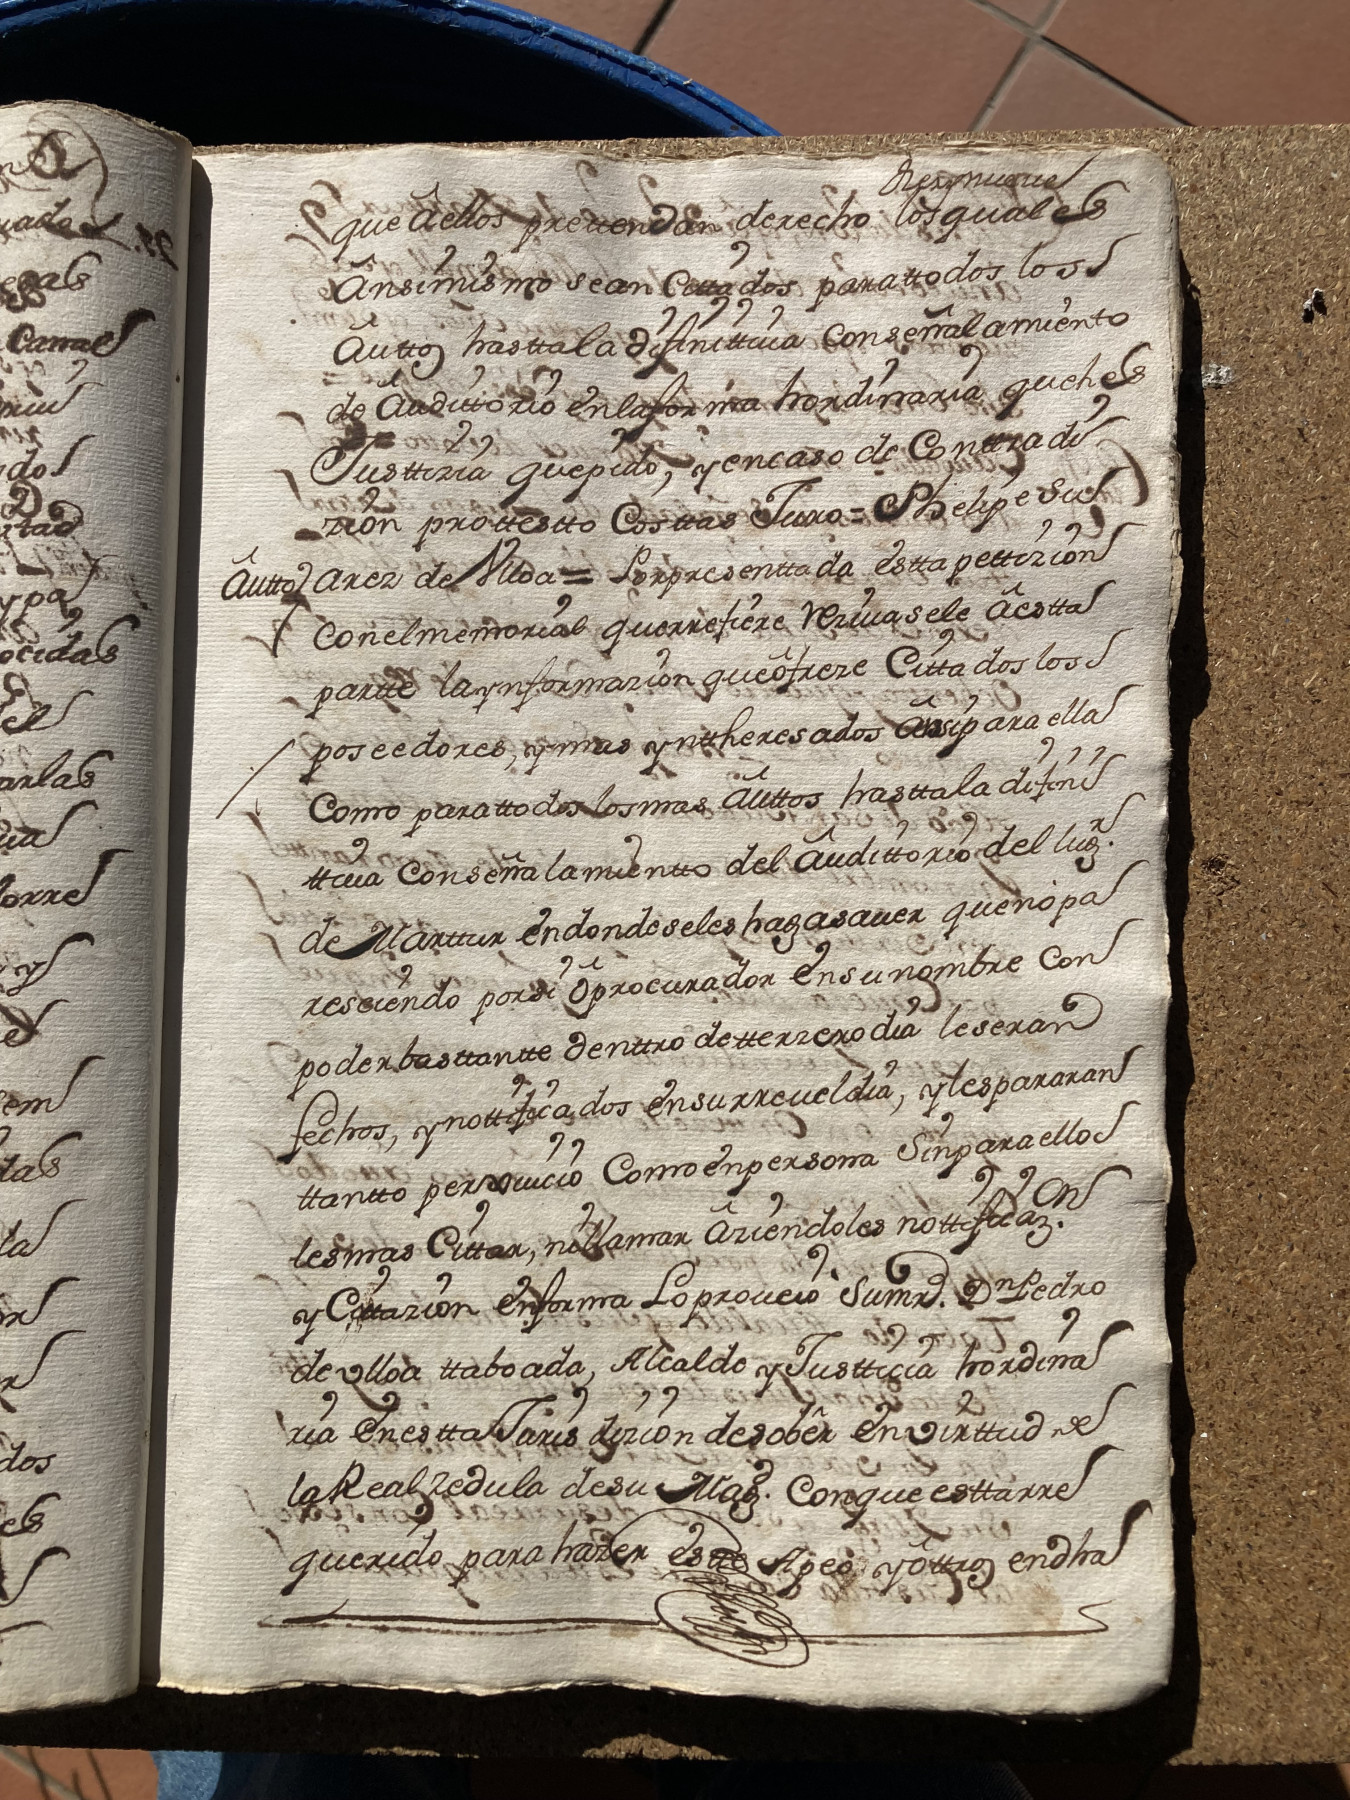 que â ellos prettendan derecho los quales
Ânsimismo sean Cittados parattodos los
Âuttos hastta la difinittiva Conseñalamiento
de Âudittorio en la forma hordinaria que hes
Justtizia que pido, y encaso de Conttradi
zion prottestto Costtas Juro = Phelipe Su
Âutto
arez de Ulloa = Porpresenttada estta pettizion
conel memorial que rrefiere Rezivasele Âestta
partte la ynformazion que ôfreze Cittados los
poseedores, y mas yntheresados Âssi para ella
Como parattodos los mas Âuttos hastta la difini
ttiva Conseñalamientto del Âudittorio del lug.r
de Marttur en donde seles haga saver que no pa
resciendo por si ô procurador en su nombre Con
poder basttantte denttro de tterzero dia le seran
fechos, y nottificados en su rreveldia, y les pararan
ttantto perxuicio Como en persona Sin para ellos
les mas Cittar, ni llamar Âziendoles nottificaz.on
y Cittazion en forma Lo proveio Su mrd. Dn Pedro
de Ulloa ttaboada, Alcalde y Justticia hordina
ria en estta Jurisdizion de sobêr en virttud de
la Real zedula de su Mag.d Con que estta rre
querido para hazer este Apeo y ôttros en dha